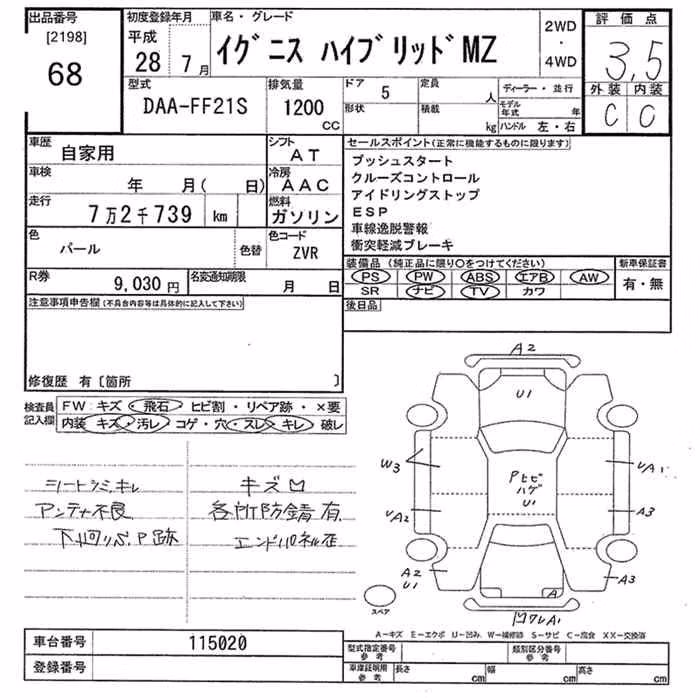 出品番号
[2198]
68
初度登録年月
平成
28 7月
車名・グレード
イグニス ハイブリッドMZ
2WD
・
4WD
評価点
3.5
外装 内装
C C
型式
DAA-FF21S
排気量
1200
CC
ドア 5
形状
定員 人
積載 kg
ディーラー・並行
モデル年式 年
ハンドル 左・右
車歴
自家用
シフト
AT
車検
年 月( 日)
冷房
AAC
走行
7万2千739 km
燃料
ガソリン
色
パール
色替
色コード
ZVR
R券
9,030円
名変通知期限
月 日
セールスポイント(正常に機能するものに限ります)
プッシュスタート
クルーズコントロール
アイドリングストップ
ESP
車線逸脱警報
衝突軽減ブレーキ
装備品(純正品に限り○をつけてください)
PS PW ABS エアB AW
SR ナビ TV カワ
新車保証書
有・無
後日品
注意事項申告欄(不具合内容等は具体的に記入して下さい)
修復歴 有〔箇所 〕
検査員記入欄
FW:キズ・飛石・ヒビ割・リペア跡・×要
内装 キズ・汚レ コゲ・穴・スレ・キレ 破レ
シートシミ,キレ
アンテナ不良
キズロ
各所防錆有
エンドパネル歪
A2
U1
W3
Pヒビ
ハゲ
U1
UA1
UA2
A3
A2
U1
A
A3
スペア
A−キズ E−エクボ U−凹み W−補修跡 S−サビ C−腐食 XX−交換済
車台番号
115020
登録番号
型式指定番号
参考
類別区分番号
参考
車庫証明用
参考
長さ cm
幅 cm
高さ cm